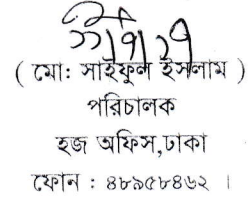 ( মো: সাইফুল ইসলাম )
পরিচালক
হজ অফিস,ঢাকা
ফোন : ৪৮৯৫৮৪৬২ ।